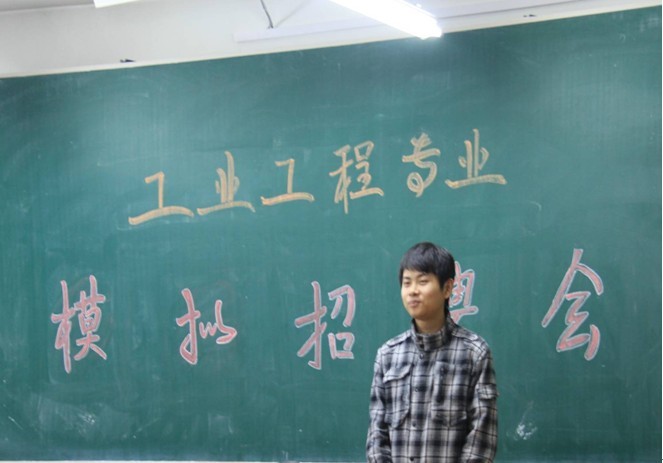 工业工程专业
模拟招 会